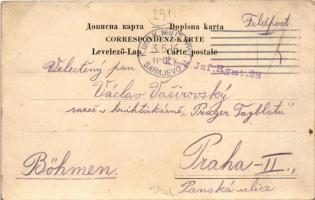 291
Дописна карта Dopisna karta
Feldpost
CORRESPONDENZ-KARTE
Levelező-Lap Carte postale
SARAJEVO
Inf. Rgmt. 28
Velectěný pan
Václav Vašírovský
sazeč v knihtiskárně „Prager Tagblattu"
Böhmen.
Praha-II.,
Panská ulice